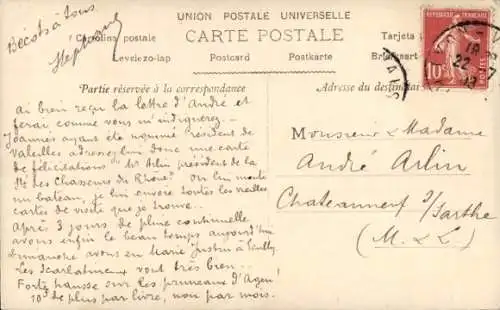 Bécots à tous
Stephane
UNION POSTALE UNIVERSELLE
Carolina postale
CARTE POSTALE
Tarjeta
Levelezo-lap
Postcard
Postkarte
Briefkaart
Partie réservée à la correspondance
Adresse du destinataire
10c
19
22
ai bien reçu la lettre d'André et
ferai comme vous m'indiquerez.
Joannès ayant été nommé président de
Vateilles adressez lui donc une carte
de félicitations du Mr Arlin président de la
Sté des Chasseurs du Rhône? On lui monte
un bateau, je lui envoie toutes les vieilles
cartes de visite que je trouve...
Après 3 jours de pluie continuelle
avons enfin le beau temps aujourd'hui
Dimanche avons eu Marie Justin à
Les Scarlatineux vont très bien...
Forte hausse sur les pruneaux d'Agen!
10s de plus par livre, non par mois.
Monsieur & Madame
André Arlin
Chateauneuf s/Sarthe
(M. & L.)